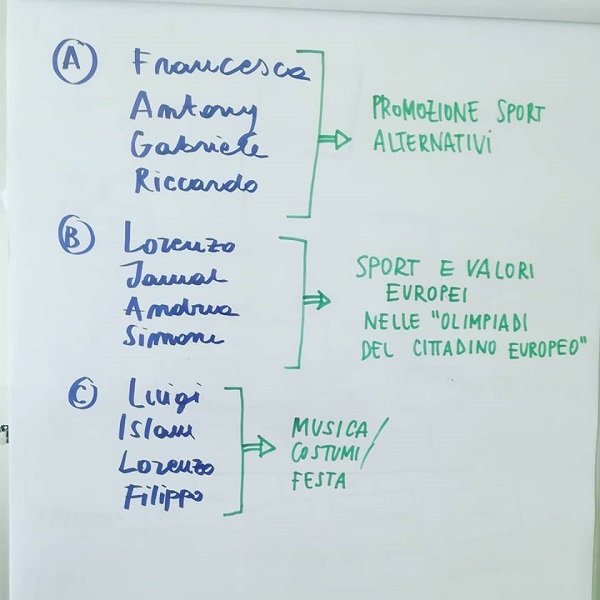 A Francesca
Antony
Gabriele
Riccardo
PROMOZIONE SPORT
ALTERNATIVI
B Lorenzo
Jamal
Andrea
Simone
SPORT E VALORI
EUROPEI
NELLE "OLIMPIADI
DEL CITTADINO EUROPEO"
C Luigi
Islam
Lorenzo
Filippo
MUSICA/
COSTUMI/
FESTA